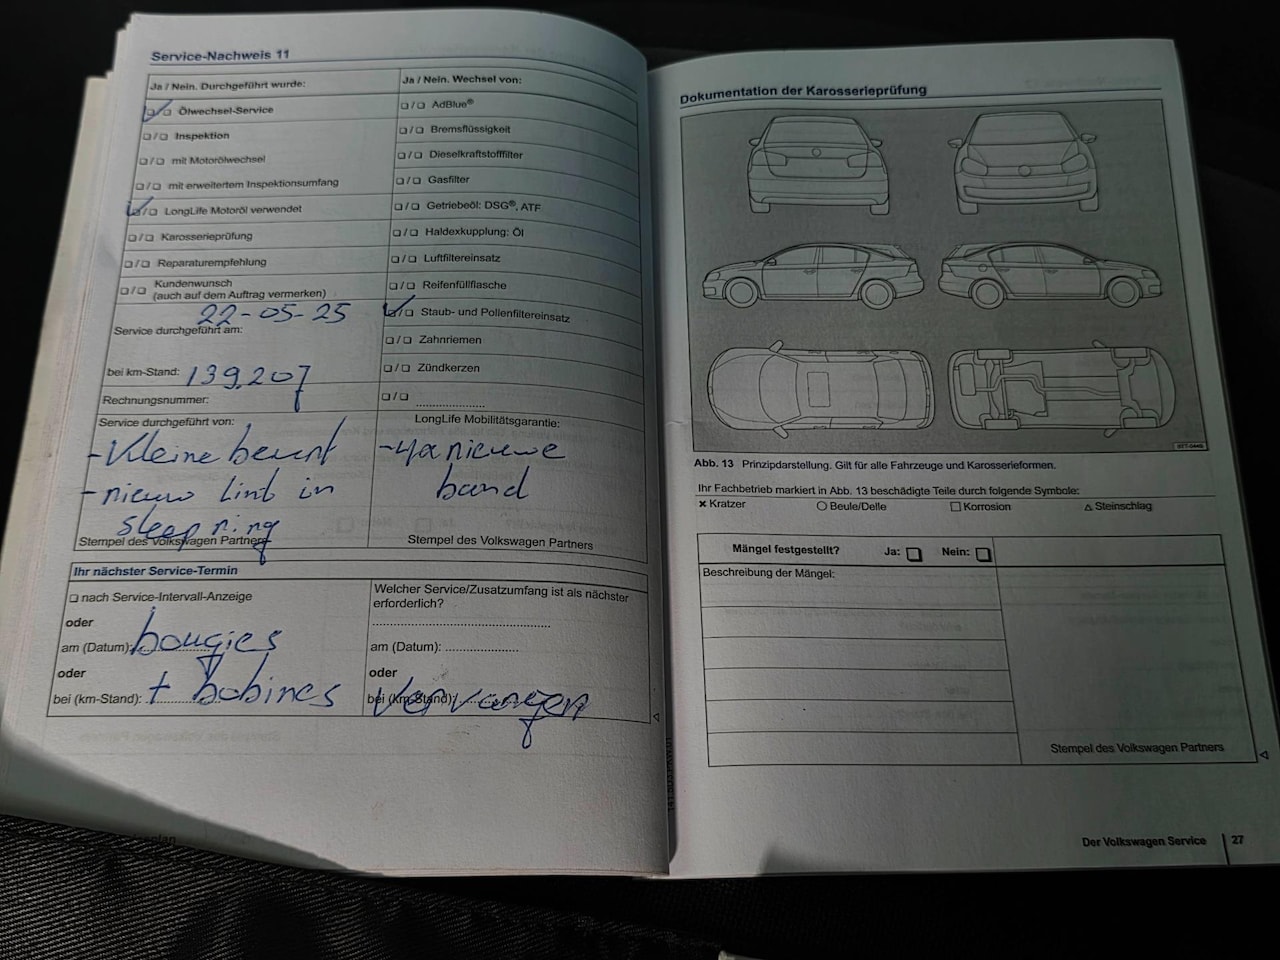 Service-Nachweis 11
Ja / Nein. Durchgeführt wurde:
☑/☐ Ölwechsel-Service
☐/☐ Inspektion
☐/☐ mit Motorölwechsel
☐/☐ mit erweitertem Inspektionsumfang
☑/☐ LongLife Motoröl verwendet
☐/☐ Karosserieprüfung
☐/☐ Reparaturempfehlung
☐/☐ Kundenwunsch
(auch auf dem Auftrag vermerken)
22-05-25
Service durchgeführt am:
bei km-Stand: 139.207
Rechnungsnummer:
Service durchgeführt von:
- Kleine beurt
- nieuw lint in
sleepring
Stempel des Volkswagen Partners
Ja / Nein. Wechsel von:
☐/☐ AdBlue®
☐/☐ Bremsflüssigkeit
☐/☐ Dieselkraftstofffilter
☐/☐ Gasfilter
☐/☐ Getriebeöl: DSG®, ATF
☐/☐ Haldexkupplung: Öl
☐/☐ Luftfiltereinsatz
☐/☐ Reifenfüllflasche
☑/☐ Staub- und Pollenfiltereinsatz
☐/☐ Zahnriemen
☐/☐ Zündkerzen
☐/☐ ....................
LongLife Mobilitätsgarantie:
- 4x nieuwe
band
Stempel des Volkswagen Partners
Ihr nächster Service-Termin
☐ nach Service-Intervall-Anzeige
oder
am (Datum): bougies
oder
bei (km-Stand): + bobines
Welcher Service/Zusatzumfang ist als nächster
erforderlich?
am (Datum): ....................
oder
bei (km-Stand): vervangen
Dokumentation der Karosserieprüfung
Abb. 13 Prinzipdarstellung. Gilt für alle Fahrzeuge und Karosserieformen.
Ihr Fachbetrieb markiert in Abb. 13 beschädigte Teile durch folgende Symbole:
✕ Kratzer ○ Beule/Delle □ Korrosion △ Steinschlag
Mängel festgestellt? Ja: ☐ Nein: ☐
Beschreibung der Mängel:
Stempel des Volkswagen Partners
Der Volkswagen Service 27